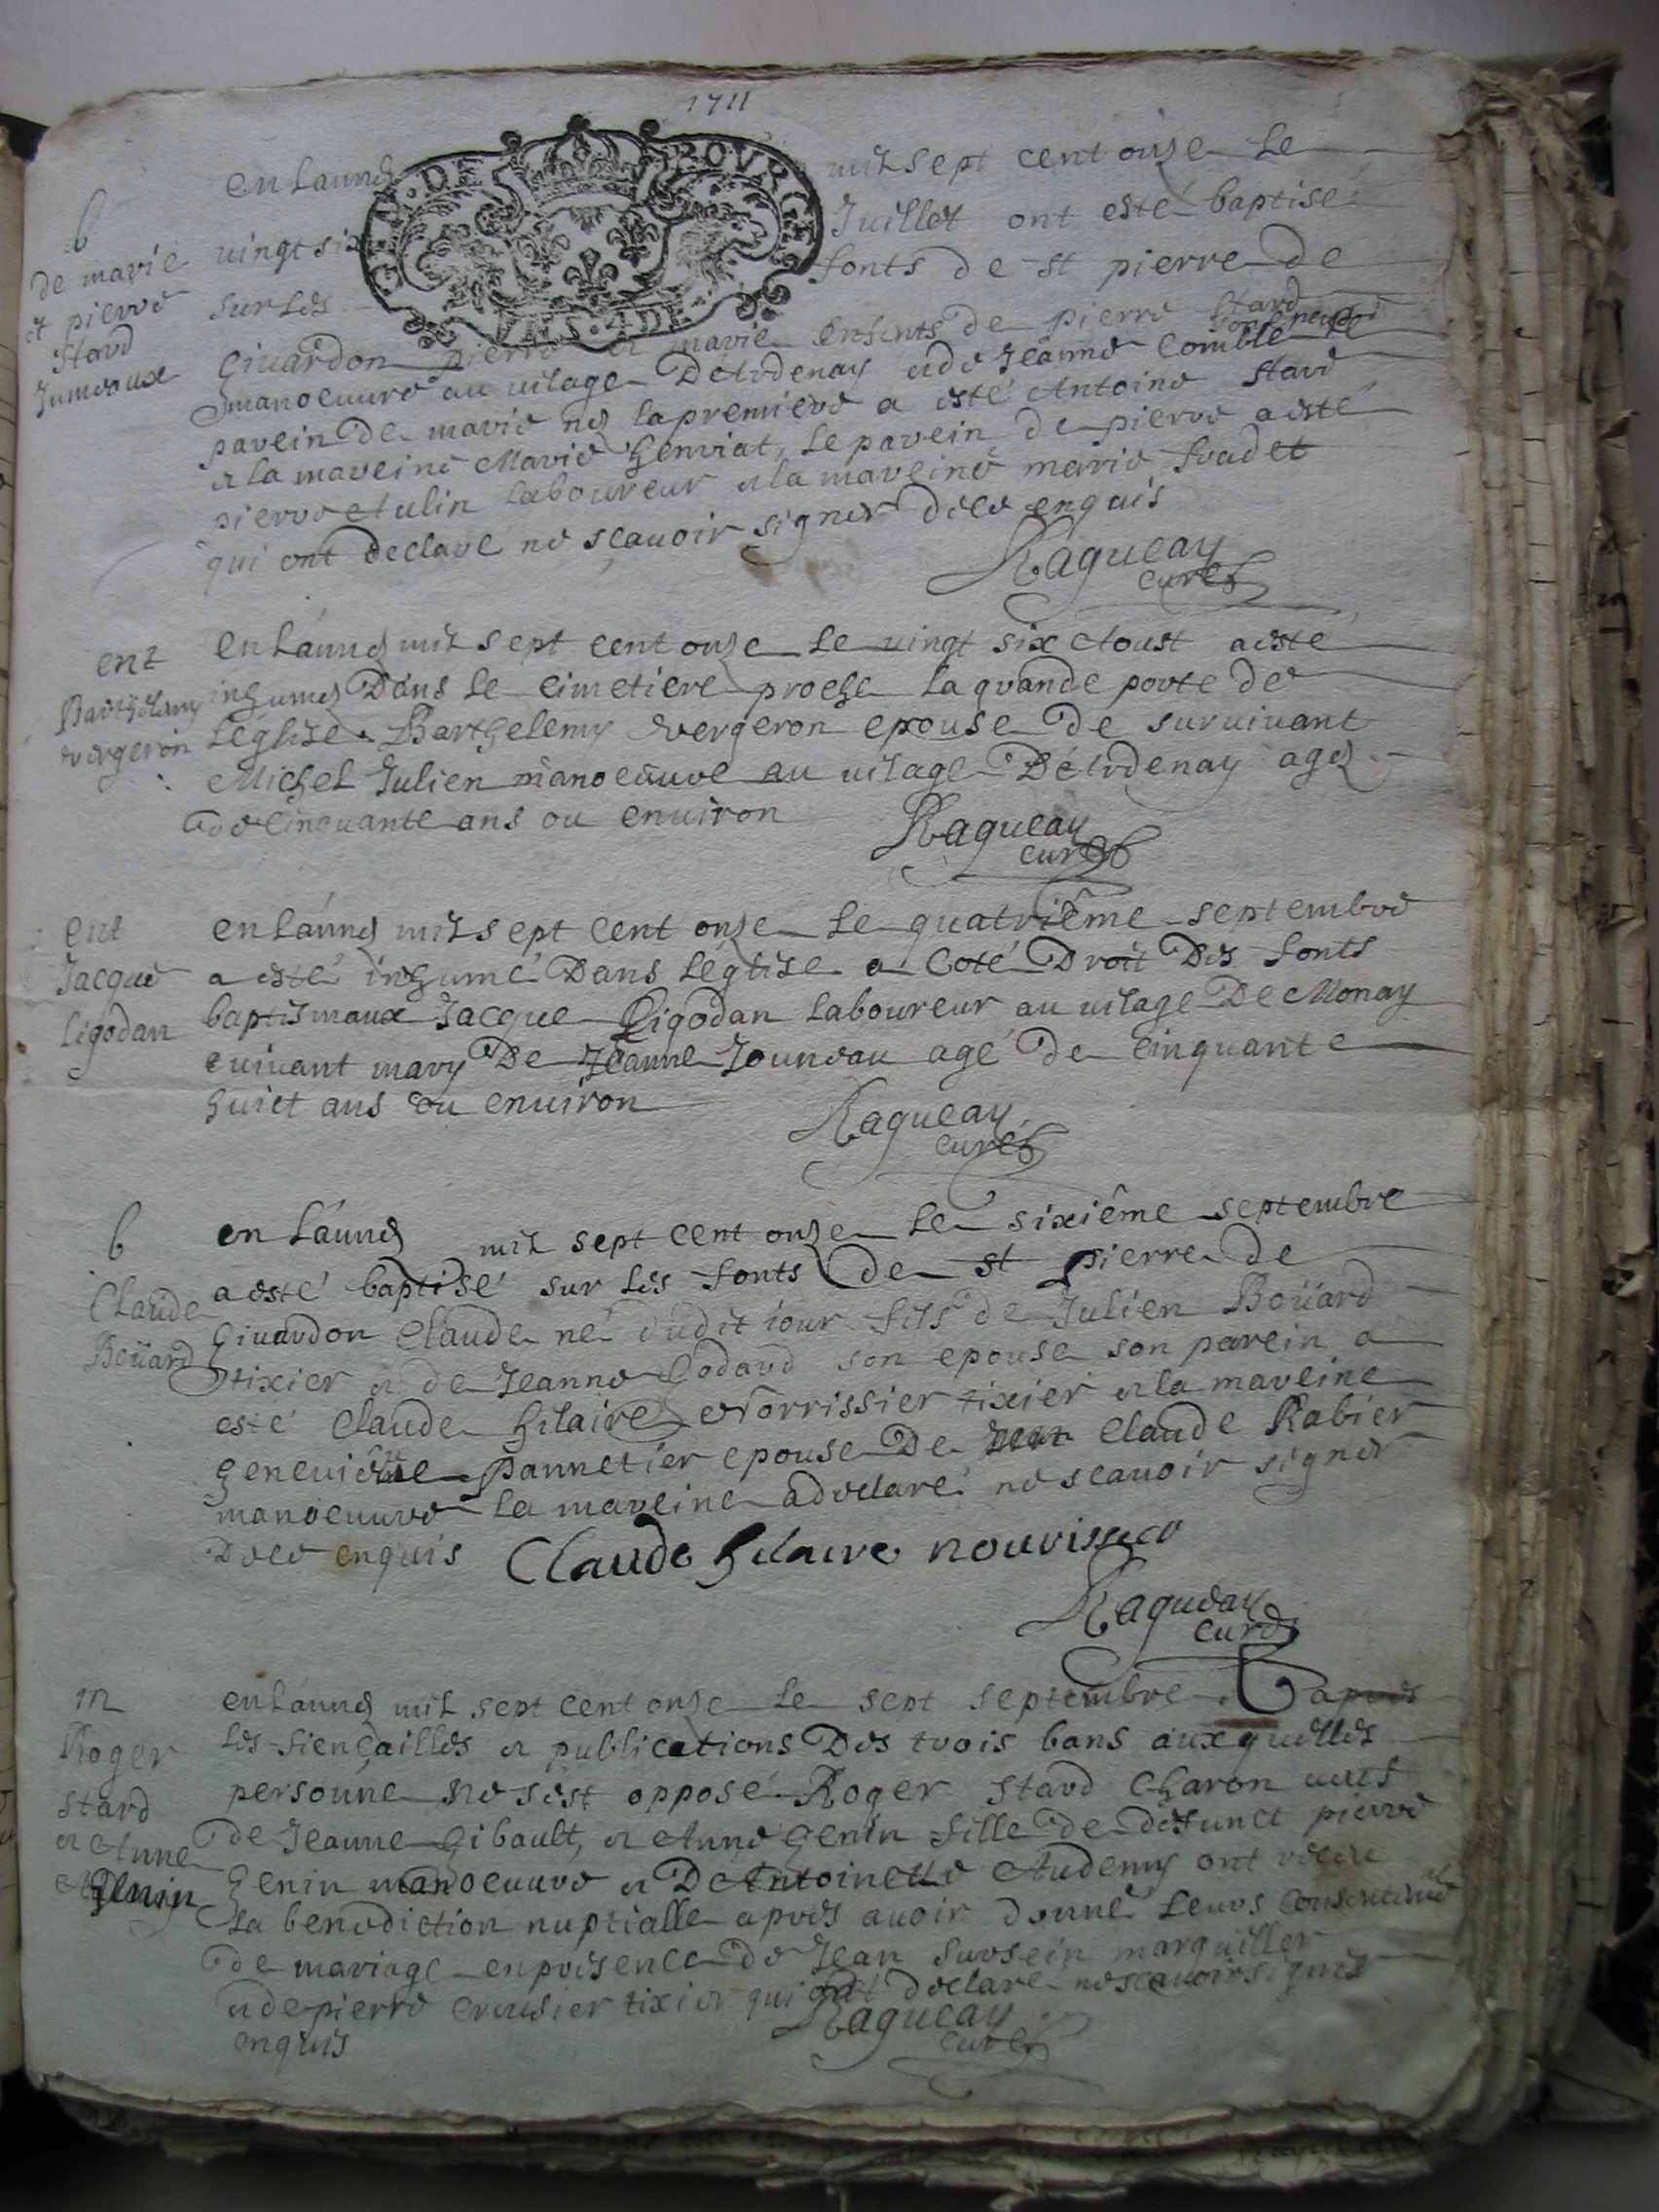 1711
en Lánneé mil sept cent onze Le
G. DE BOURGES
b
vingt six Juillet ont esté baptisé
de marie
et pierre
Stard
Jumeaux
sur Les fonts de st pierre de
Givardon pierre et marie Enfents de pierre Stard
manoeuvre au vilage Détrdenay et de Jeanne Comble
parein de marie neé la premiere a esté Antoine Stard
et la mareine Marie Genviat, Le parein de pierre a esté
pierre Aulin Laboureur et la mareine marie fradet
qui ont declaré ne scauoir signer de ce enquis
Ragueau
curé
ent
Barthelemy
vergeron
en Lánneé mil sept cent onze Le vingt six Aoust a esté
inhumeé Dans Le cimetiere proche La grande porte de
Léglise Barthelemy vergeron epouse de survivant
Michel Julien manoeuvre au vilage Détrdenay ageé
de cinquante ans ou environ
Ragueau
curé
ent
Jacque
Ligodan
en Lánneé mil sept cent onze Le quatriême septembre
a esté inhumé Dans Léglise a Coté Droit Des fonts
baptismaux Jacque Ligodan Laboureur au vilage De Monay
vivant mary De Jeanne Jouneau agé De cinquante
huict ans ou environ
Ragueau
curé
b
Claude
Boüard
en Lánneé mil sept cent onze Le sixiême septembre
a esté baptisé sur Les fonts de st pierre de
Givardon Claude né dudit iour fils de Julien Boüard
tixier et de Jeanne Godard son epouse son parein a
esté Claude hilaire Norrissier tixier et la mareine
Genevieve pannetier epouse De Claude Rabier
manoeuvre La mareine a declaré ne scauoir signer
De ce enquis Claude hilaire nourissier
Ragueau
curé
m
Roger
Stard
et Anne
Genin
en Lánneé mil sept cent onze Le sept septembre apres
Les fiencailles et publications Des trois bans auxquelles
personne ne sést opposé Roger Stard Charon veuf
de Jeanne Gibault, et Anne Genin fille de defunct pierre
Genin manoeuvre et D'Antoinette Audemy ont receu
La benediction nuptialle apres auoir donné Leurs consentemt
de mariage en presence de Jean Sursein marguiller
et de pierre creusier tixier qui ont declare ne scauoir signer
enquis
Ragueau
curé